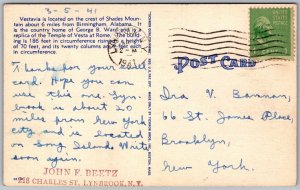 3-5-41
Vestavia is located on the crest of Shades Moun-
tain about 6 miles from Birmingham, Alabama. It
is the country home of George B. Ward and is a
replica of the Temple of Vesta at Rome. The build-
ing is 186 feet in circumference carries a height
of 70 feet, and its twenty columns are feet each
in circumference.
Thanks for your
card. Hope you can
use this one. Lyn-
brook is about 20
miles from New York
city and is located
on Long Island. Write
soon again.
JOHN F. BEETZ
CHARLES ST. LYNBROOK, N.Y.
POST CARD
V. Bannan,
66 St. James Place,
Brooklyn,
New York.